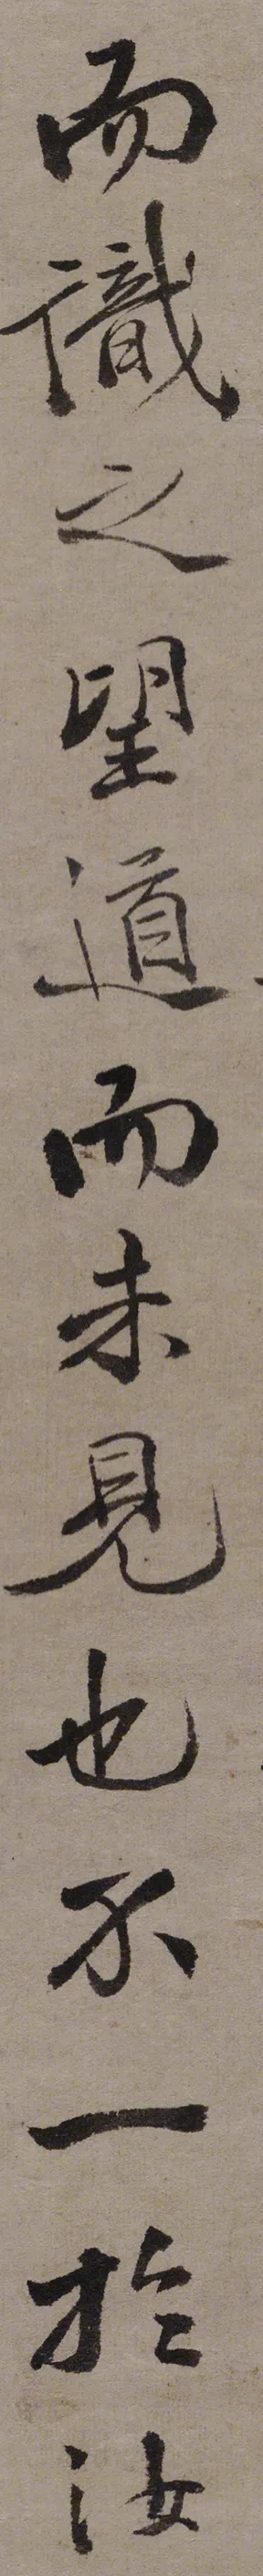 而識之望道而未見也不一於汝